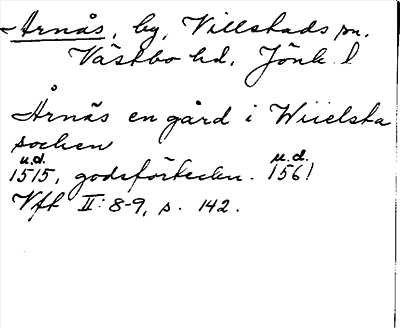 Arnås, by, Villstads sn.
Västbo hd, Jönk. l
Årnäs en gård i Wiielsta
socken
u.d. u.d.
1515, godsförteckn. 1561
Vft II: 8-9, s. 142.